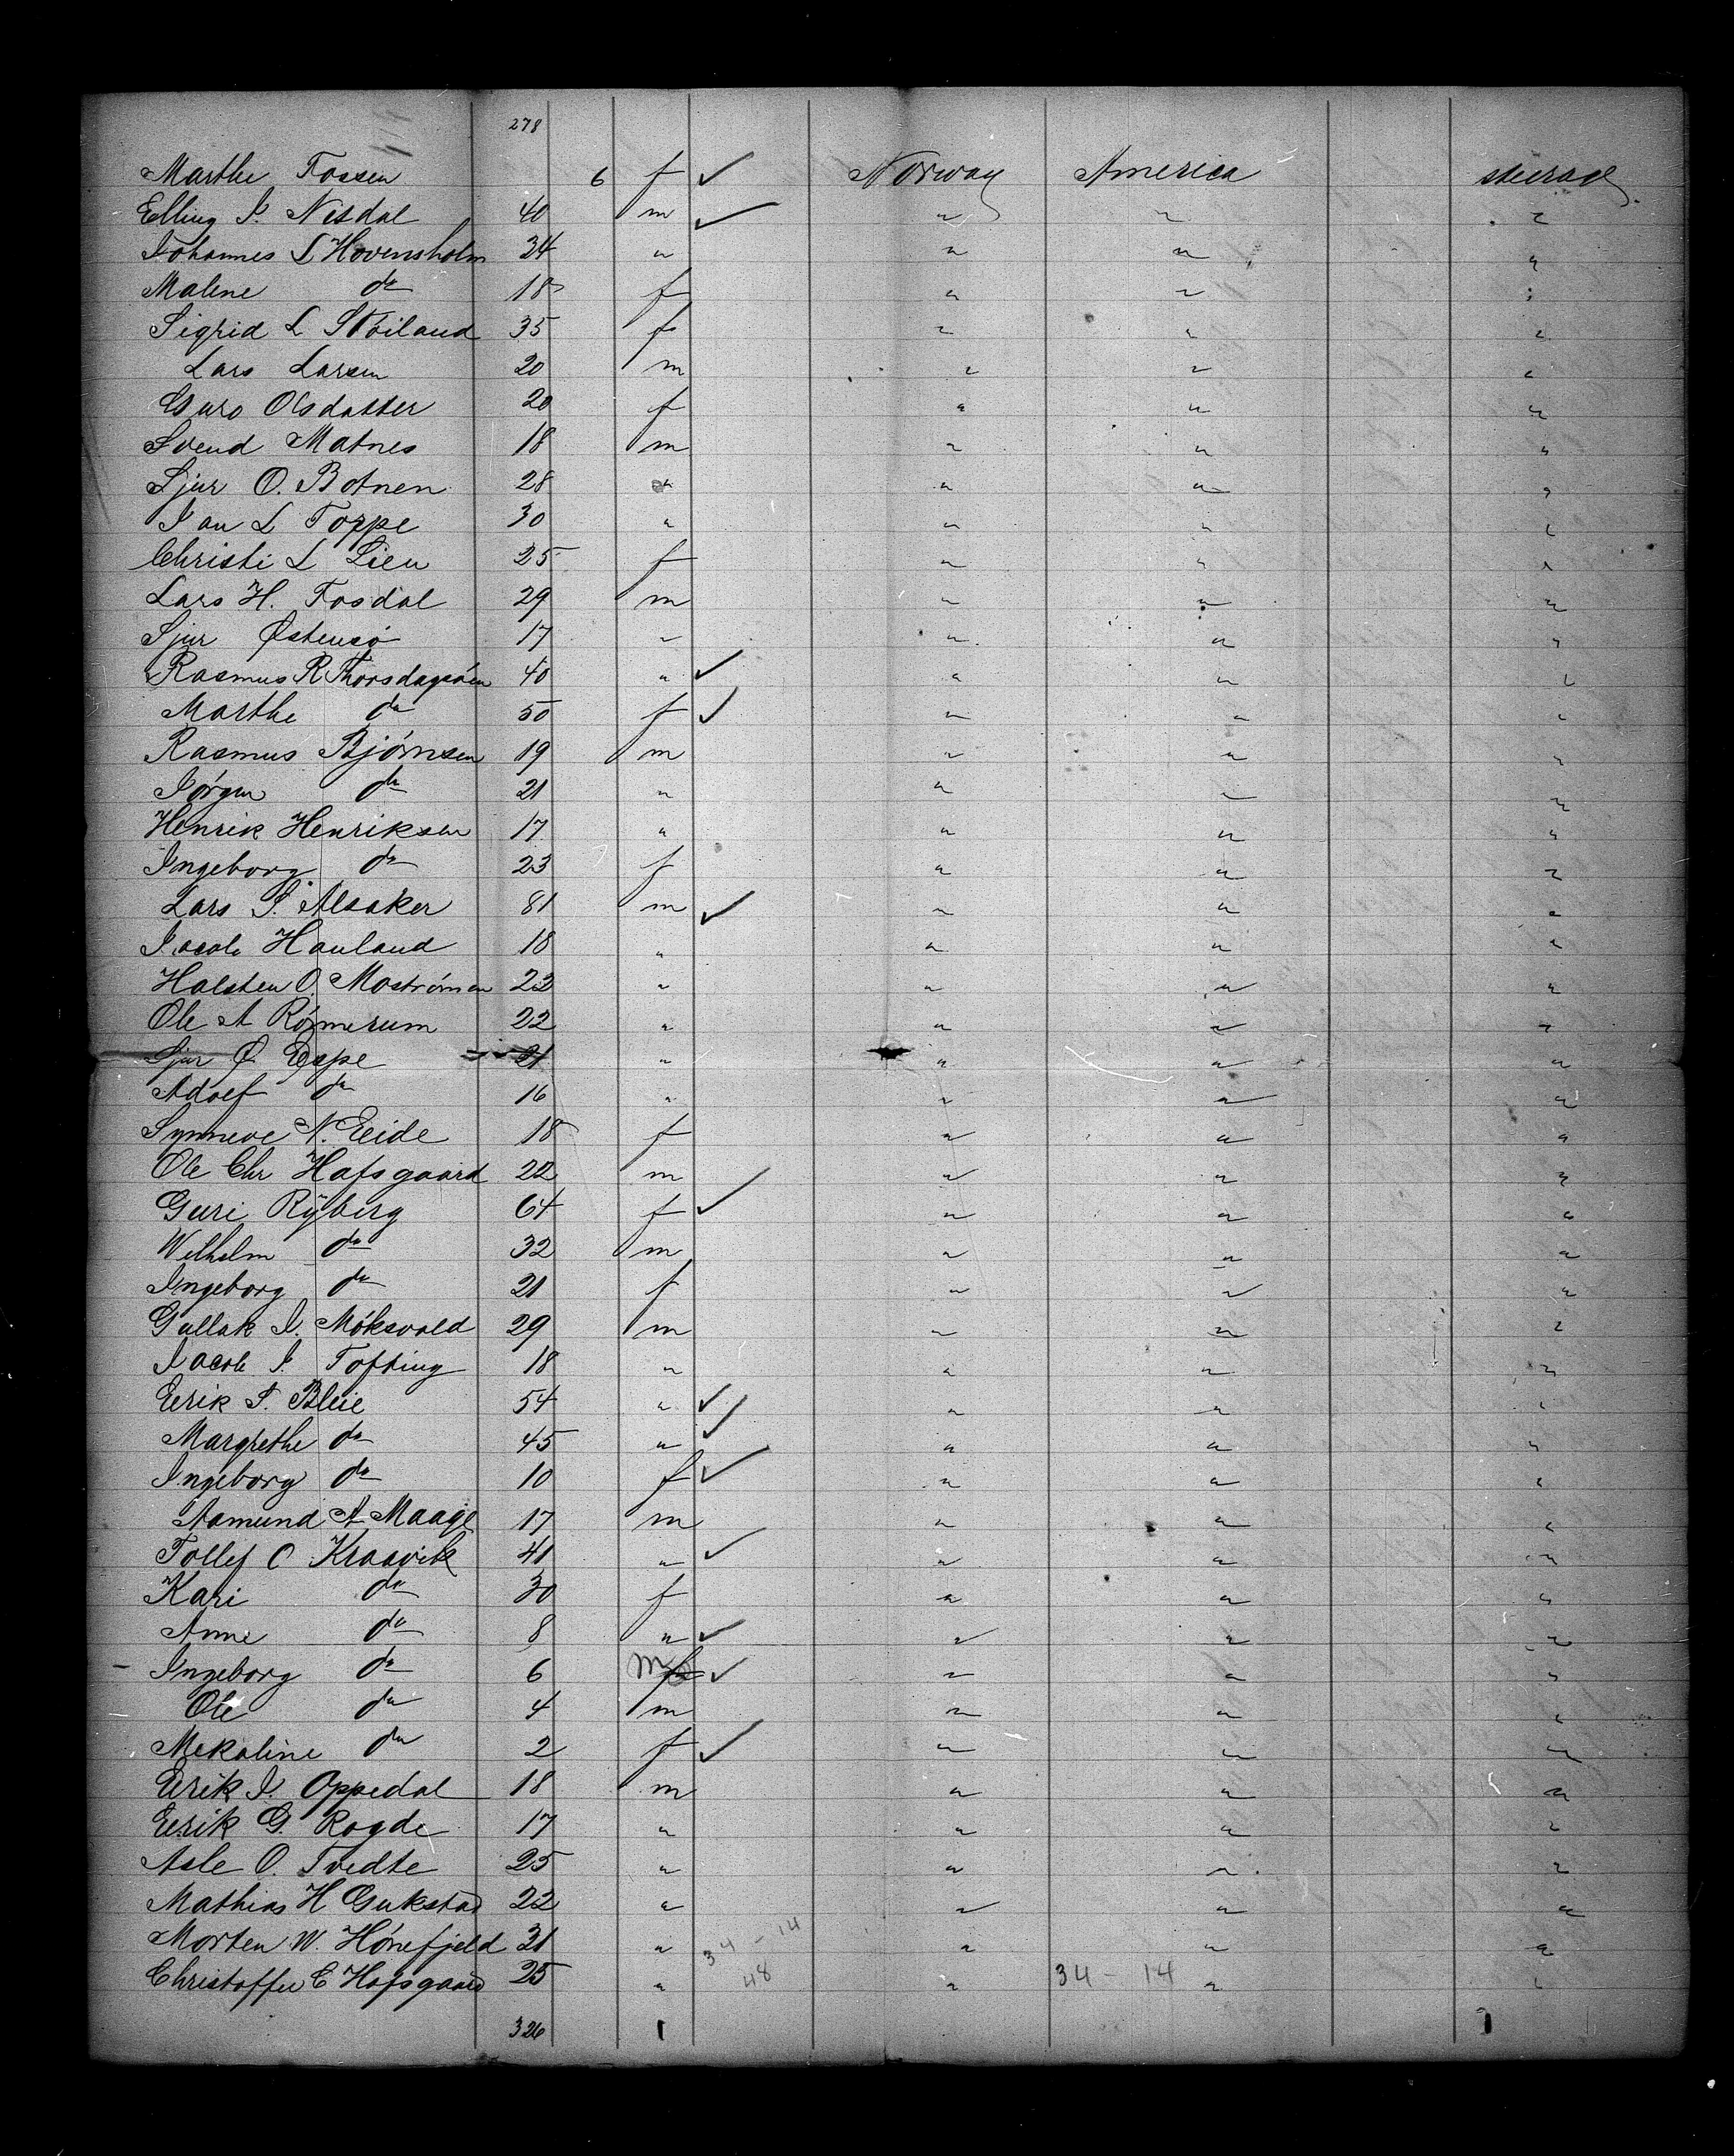 278
Marthe Fossen 6 f ✓ Norway America steerage
Elling I. Nesdal 40 m ✓ " " "
Johannes L Hovensholm 34 " " " "
Malene do 18 f " " "
Sigrid L Støiland 35 f " " "
Lars Larsen 20 m " " "
Guro Olsdatter 20 f " " "
Svend Matnes 18 m " " "
Sjur O. Botnen 28 " " " "
Jan L Toppe 30 " " " "
Christi L Lien 25 f " " "
Lars H. Fosdal 29 m " " "
Sjur Østensø 17 " " " "
Rasmus R Thorsdagsøen 40 " ✓ " " "
Marthe do 50 f ✓ " " "
Rasmus Bjørnsen 19 m " " "
Jørgen do 21 " " " "
Henrik Henriksen 17 " " " "
Ingeborg do 23 f " " "
Lars S. Alsaker 81 m ✓ " " "
Jacob Hauland 18 " " " "
Halsten O. Mostrømen 22 " " " "
Ole A Rømerum 22 " " " "
Sjur O Espe 21 " " " "
Adolf do 16 " " " "
Synneve N. Eide 18 f " " "
Ole Chr Hafsgaard 22 m " " "
Guri Ryberg 64 f ✓ " " "
Wilhelm do 32 m " " "
Ingeborg do 21 f " " "
Gullak I. Møksvold 29 m " " "
Jacob I. Tofting 18 " " " "
Erik S. Bleie 54 " ✓ " " "
Margrethe do 45 " ✓ " " "
Ingeborg do 10 f ✓ " " "
Aamund A Maage 17 m " " "
Tollef O Kraavik 41 " ✓ " " "
Kari do 30 f " " "
Anne do 8 " ✓ " " "
Ingeborg do 6 m f ✓ " " "
Ole do 4 m " " "
Mekaline do 2 f ✓ " " "
Erik I. Oppedal 18 m " " "
Erik G. Rogde 17 " " " "
Asle O. Tvedte 25 " " " "
Mathias H Gukstad 22 " " " "
Morten W. Hønefjeld 31 " 34 - 14 " " "
Christoffer E Hafsgaard 25 " 48 " 34 - 14 " "
326 1 1